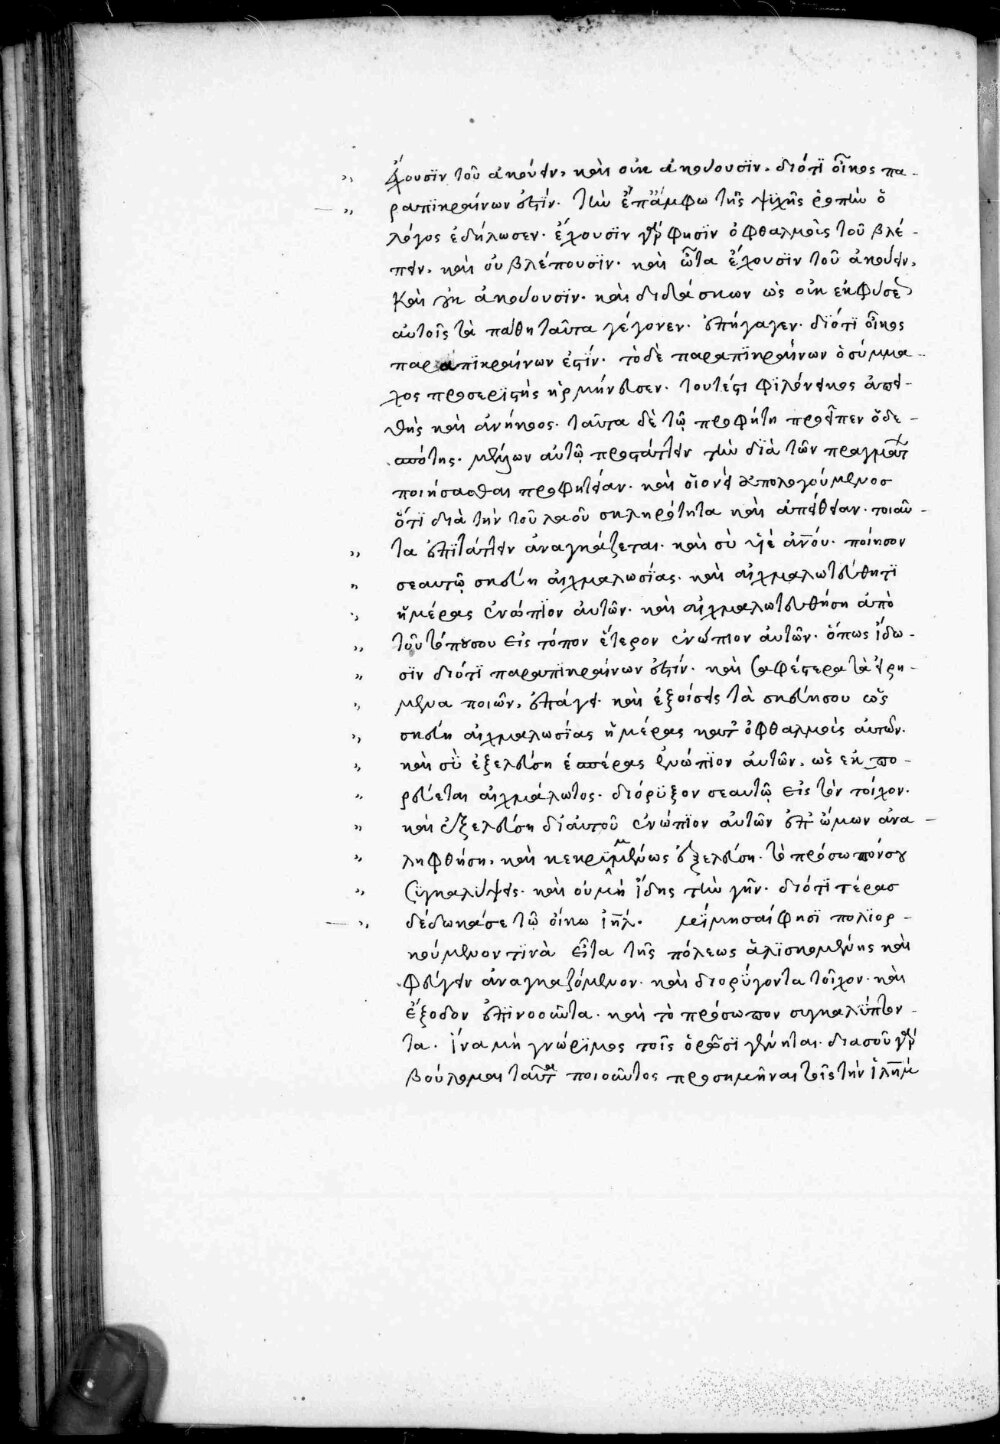 ἔχουσϊν τοῦ ἀκούειν, καὶ οὐκ ἀκούουσϊν. διότϊ οἶκος πα-
ραπϊκραίνων ἐστίν. τὴν ἐπ' ἄμφω τῆς ψυχῆς ῥοπὴν ὁ
λόγος ἐδήλωσεν. ἔχουσϊν γάρ φησϊν ὀφθαλμοὺς τοῦ βλέ-
πειν, καὶ οὐ βλέπουσϊν. καὶ ὦτα ἔχουσϊν τοῦ ἀκούειν,
καὶ οὐκ ἀκούουσϊν. καὶ διδάσκων ὡς οὐκ ἐκ φύσεως
αὐτοῖς τὰ πάθη ταῦτα γέγονεν. ἐπήγαγεν. διότϊ οἶκος
παραπϊκραίνων ἐστίν. τὸ δὲ παραπϊκραίνων ὁ σύμμα-
χος προσερϊστὴς ἡρμήνευσεν. τουτέστι φϊλόνεικος ἀπει-
θὴς καὶ ἀνήκοος. ταῦτα δὲ τῷ προφήτῃ προεῖπεν ὁ δε-
σπότης. μέλλων αὐτῷ προστάττειν τὴν διὰ τῶν πραγμάτων
ποιήσασθαι προφητείαν. καὶ οἱονεὶ ἀπολογούμενος
ὅτϊ διὰ τὴν τοῦ λαοῦ σκληρότητα καὶ ἀπείθειαν. τοιαῦ-
τα ἐπιτάττειν ἀναγκάζεται. καὶ σὺ υἱὲ ἀν̅ου̅. ποίησον
σεαυτῷ σκεύη αἰχμαλωσΐας. καὶ αἰχμαλωτεύθητϊ
ἡμέρας ἐνώπϊον αὐτῶν. καὶ αἰχμαλωτευθήσῃ ἀπὸ
τοῦ τόπου σου εἰς τόπον ἕτερον ἐνώπιον αὐτῶν. ὅπως ἴδω-
σϊν διότϊ παραπϊκραίνων ἐστίν. καὶ σαφέστερα τὰ εἰρη-
μένα ποιῶν, ἐπάγει. καὶ ἐξοίσεις τὰ σκεύη σου ὡς
σκεύη αἰχμαλωσίας ἡμέρας κατ' ὀφθαλμοὺς αὐτῶν.
καὶ σὺ ἐξελεύσῃ ἑσπέρας ἐνώπϊον αὐτῶν, ὡς ἐκπο-
ρεύεται αἰχμάλωτος. διόρυξον σεαυτῷ εἰς τὸν τοῖχον.
καὶ ἐξελεύσῃ δι' αὐτοῦ ἐνώπϊον αὐτῶν ἐπ' ὤμων ἀνα-
ληφθήσῃ, καὶ κεκρυμμένως ἐξελεύσῃ. τὸ πρόσωπόν σου
συγκαλύψεις. καὶ οὐ μὴ ἴδῃς τὴν γῆν. διότϊ τέρας
δέδωκά σε τῷ οἴκῳ ἰη̅λ̅. μίμησαί φησϊ πολϊορ-
κούμενον τϊνὰ εἶτα τῆς πόλεως ἁλϊσκομένης καὶ
φεύγειν ἀναγκαζόμενον. καὶ διορύγοντα τοῖχον. καὶ
ἔξοδον ἐπϊνοοῦντα. καὶ τὸ πρόσωπον συγκαλύπτον-
τα. ἵνα μὴ γνώρϊμος τοῖς ὁρῶσϊ γένηται. διὰ σοῦ γὰρ
βούλομαι ταῦτα ποιοῦντος προσημῆναι τοῖς τὴν ἱλη̅μ̅